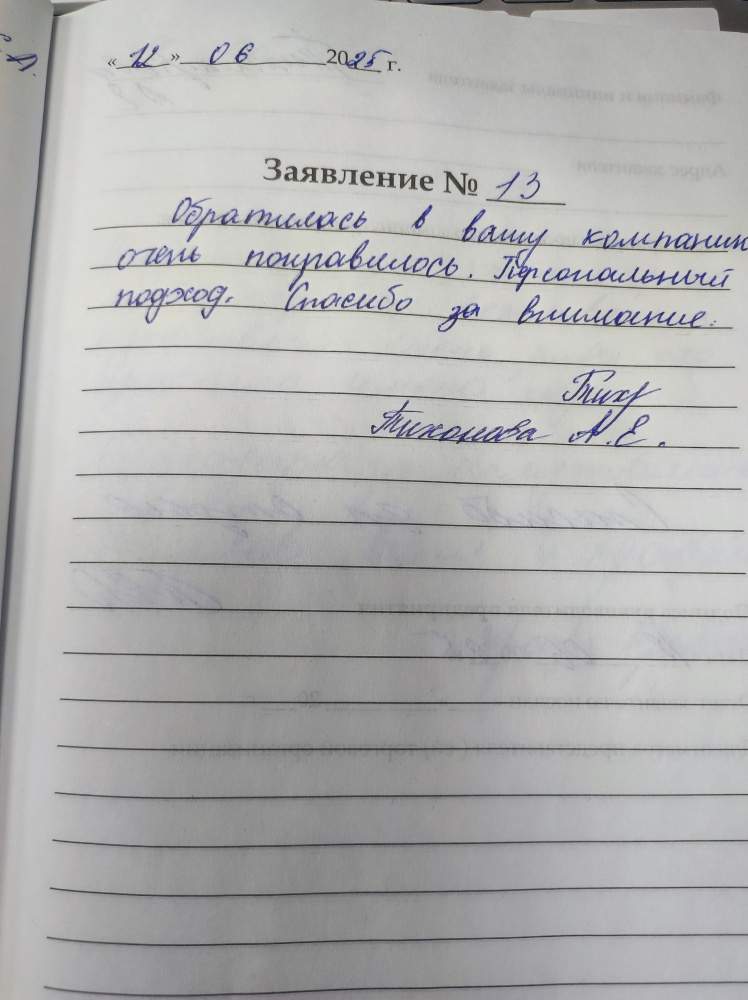 «12» 06 2025 г.
Заявление № 13
Обратилась в вашу компанию
очень понравилось. Персональный
подход. Спасибо за внимание.
Тихонова А.Е.